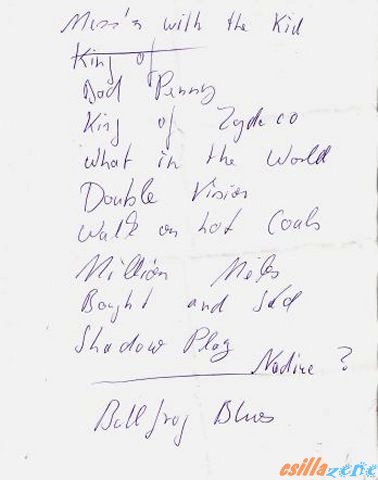 Mess'n with the Kid
King of
Bad Penny
King of Zydeco
What in the World
Double Vision
Walk on hot Coals
Million Miles
Boght and Sold
Shadow Play
Nadine ?
Bullfrog Blues
csillazene